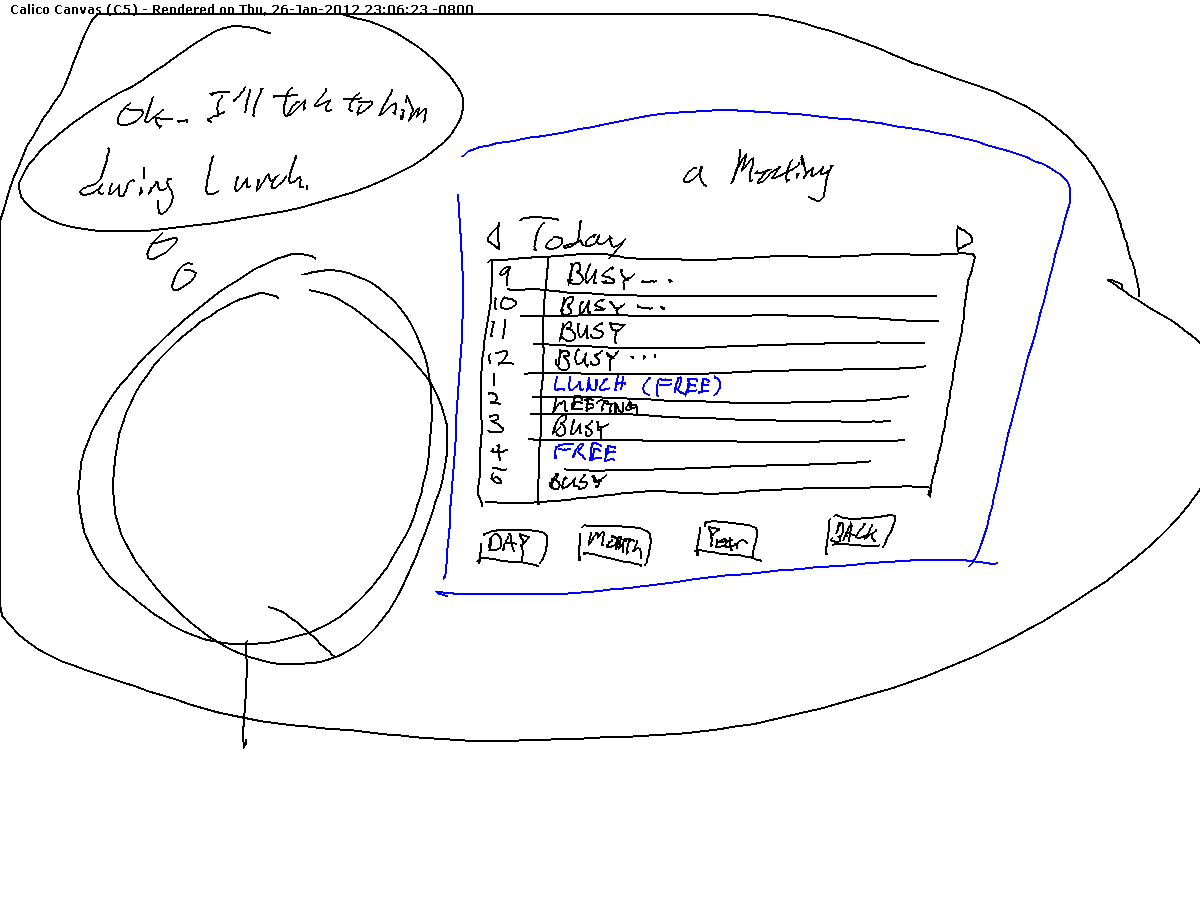 Calico Canvas (C5) - Rendered on Thu, 26-Jan-2012 23:06:23 -0800
Ok.. I'll talk to him
during Lunch.
a Meeting
Today
9 BUSY...
10 BUSY...
11 BUSY
12 BUSY...
1 LUNCH (FREE)
2 MEETING
3 BUSY
4 FREE
5 BUSY
DAY MONTH Year BACK